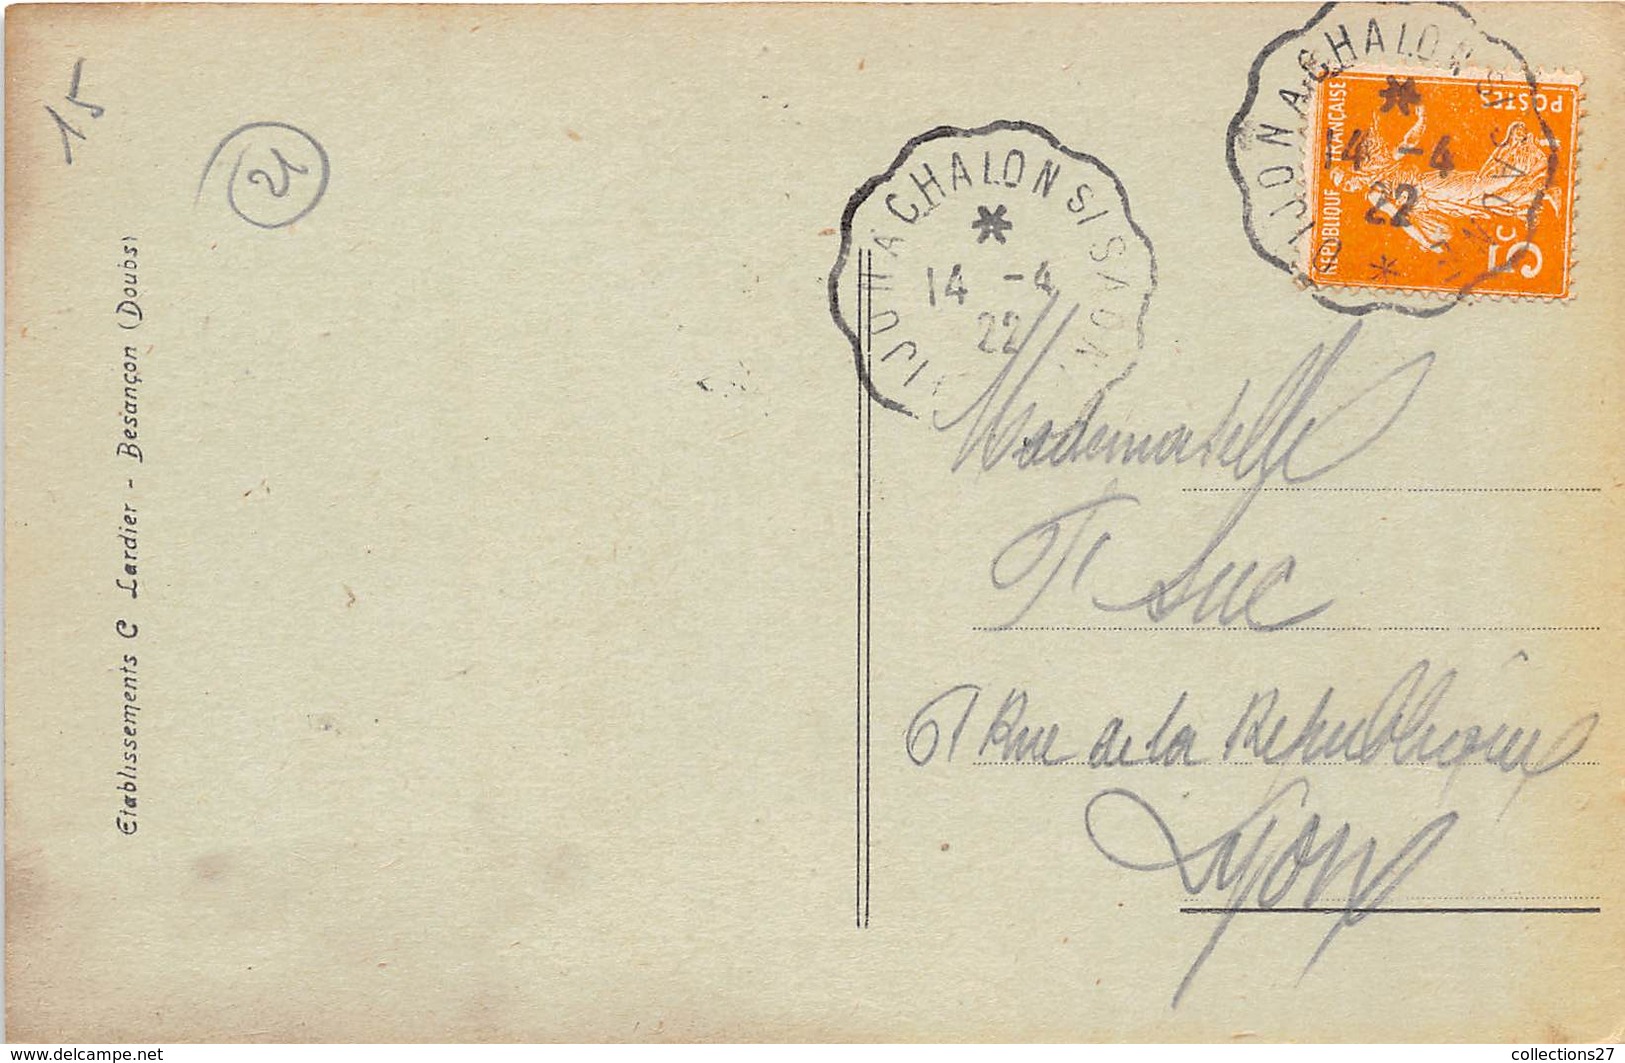 15
21
Etablissements C Lardier - Besançon (Doubs)
DIJON A CHALON S/ SAONE
14 -4
22
DIJON A CHALON S/ SAONE
14 -4
22
REPUBLIQUE FRANÇAISE
POSTES
5c
Mademoiselle
Suc
Rue de la République
Lyon
www.delcampe.net
collections27